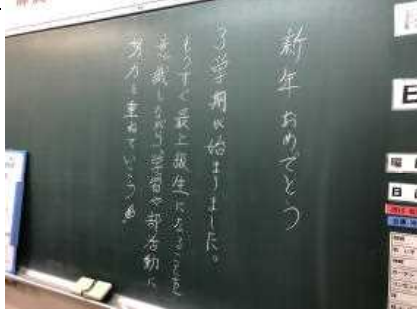 新年おめでとう
3学期が始まりました。
もうすぐ最上級生になることを
意識しながら、学習や部活動に、
努力を重ねていこう
日
曜
日